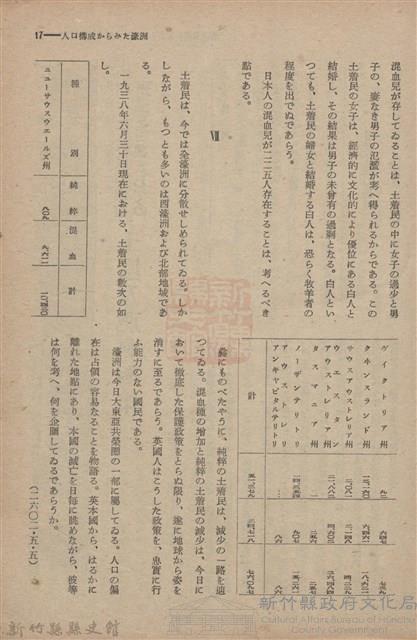 17——人口構成からみた濠洲
混血兒が存してゐることは、土着民の中に女子の過少と男
子の、妻なき男子の氾濫が考へ得られるからである。この
土着民の女子は、經濟的に文化的により優位にある白人と
結婚し、その結果は男子の未曾有の過剩となる。白人とい
つても、土着民の婦女と結婚する白人は、恐らく牧羊者の
程度を出でぬであらう。
日本人の混血兒が二二五人存在することは、考へるべき
點である。
Ⅶ
土着民は、今では全濠洲に分散せしめられてゐる。しか
しながら、もつとも多いのは西濠洲および北部地域であ
る。
一九三八年六月三十日現在における、土着民の數次の如
し。
種別 純粹 混血 計
ニューサウスウエールズ州
ヴイクトリア州
クヰンスランド州
サウスアウストレリア州
ウエスタンアウストレリア州
タスマニア州
ノーザンテリトリ
アウストレリアンキャピタルテリトリ
計
餘にものべたやうに、純粹の土着民は、減少の一路を辿
つてゐる。混血種の增加と純粹の土着民の減少は、今日に
おいて徹底した保護政策をとらぬ限り、遂に地球から姿を
消すに至るであらう。英國人はこうした政策を、忠實に行
ふ能力のない國民である。
濠洲は今日大東亞共榮圈の一部に屬してゐる。人口の偏
在は占領の容易なることを物語る。英本國から、はるかに
離れた地點にあり、本國の滅亡を日每に眺めながら、彼等
は何を考へ、何を企圖してゐるであらうか。
(二六〇二・五・五)
新竹縣縣史館
新竹縣政府文化局
Cultural Affairs Bureau of Hsinchu
County Government